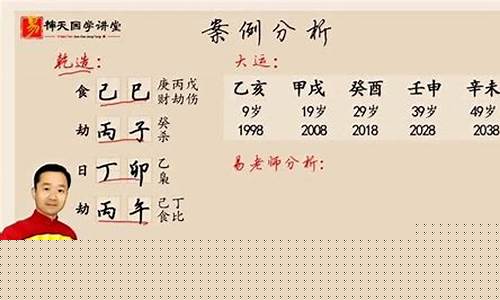 易 天国学讲堂
案例分析
乾造：
食 己巳 庚丙戊
财劫伤
劫 丙子 癸
杀
日 丁卯 乙
枭
劫 丙午 己丁
食比
大运：
乙亥 甲戌 癸酉 壬申 辛未
9岁 19岁 29岁 39岁 49岁
1998 2008 2018 2028 2038
易老师分析：